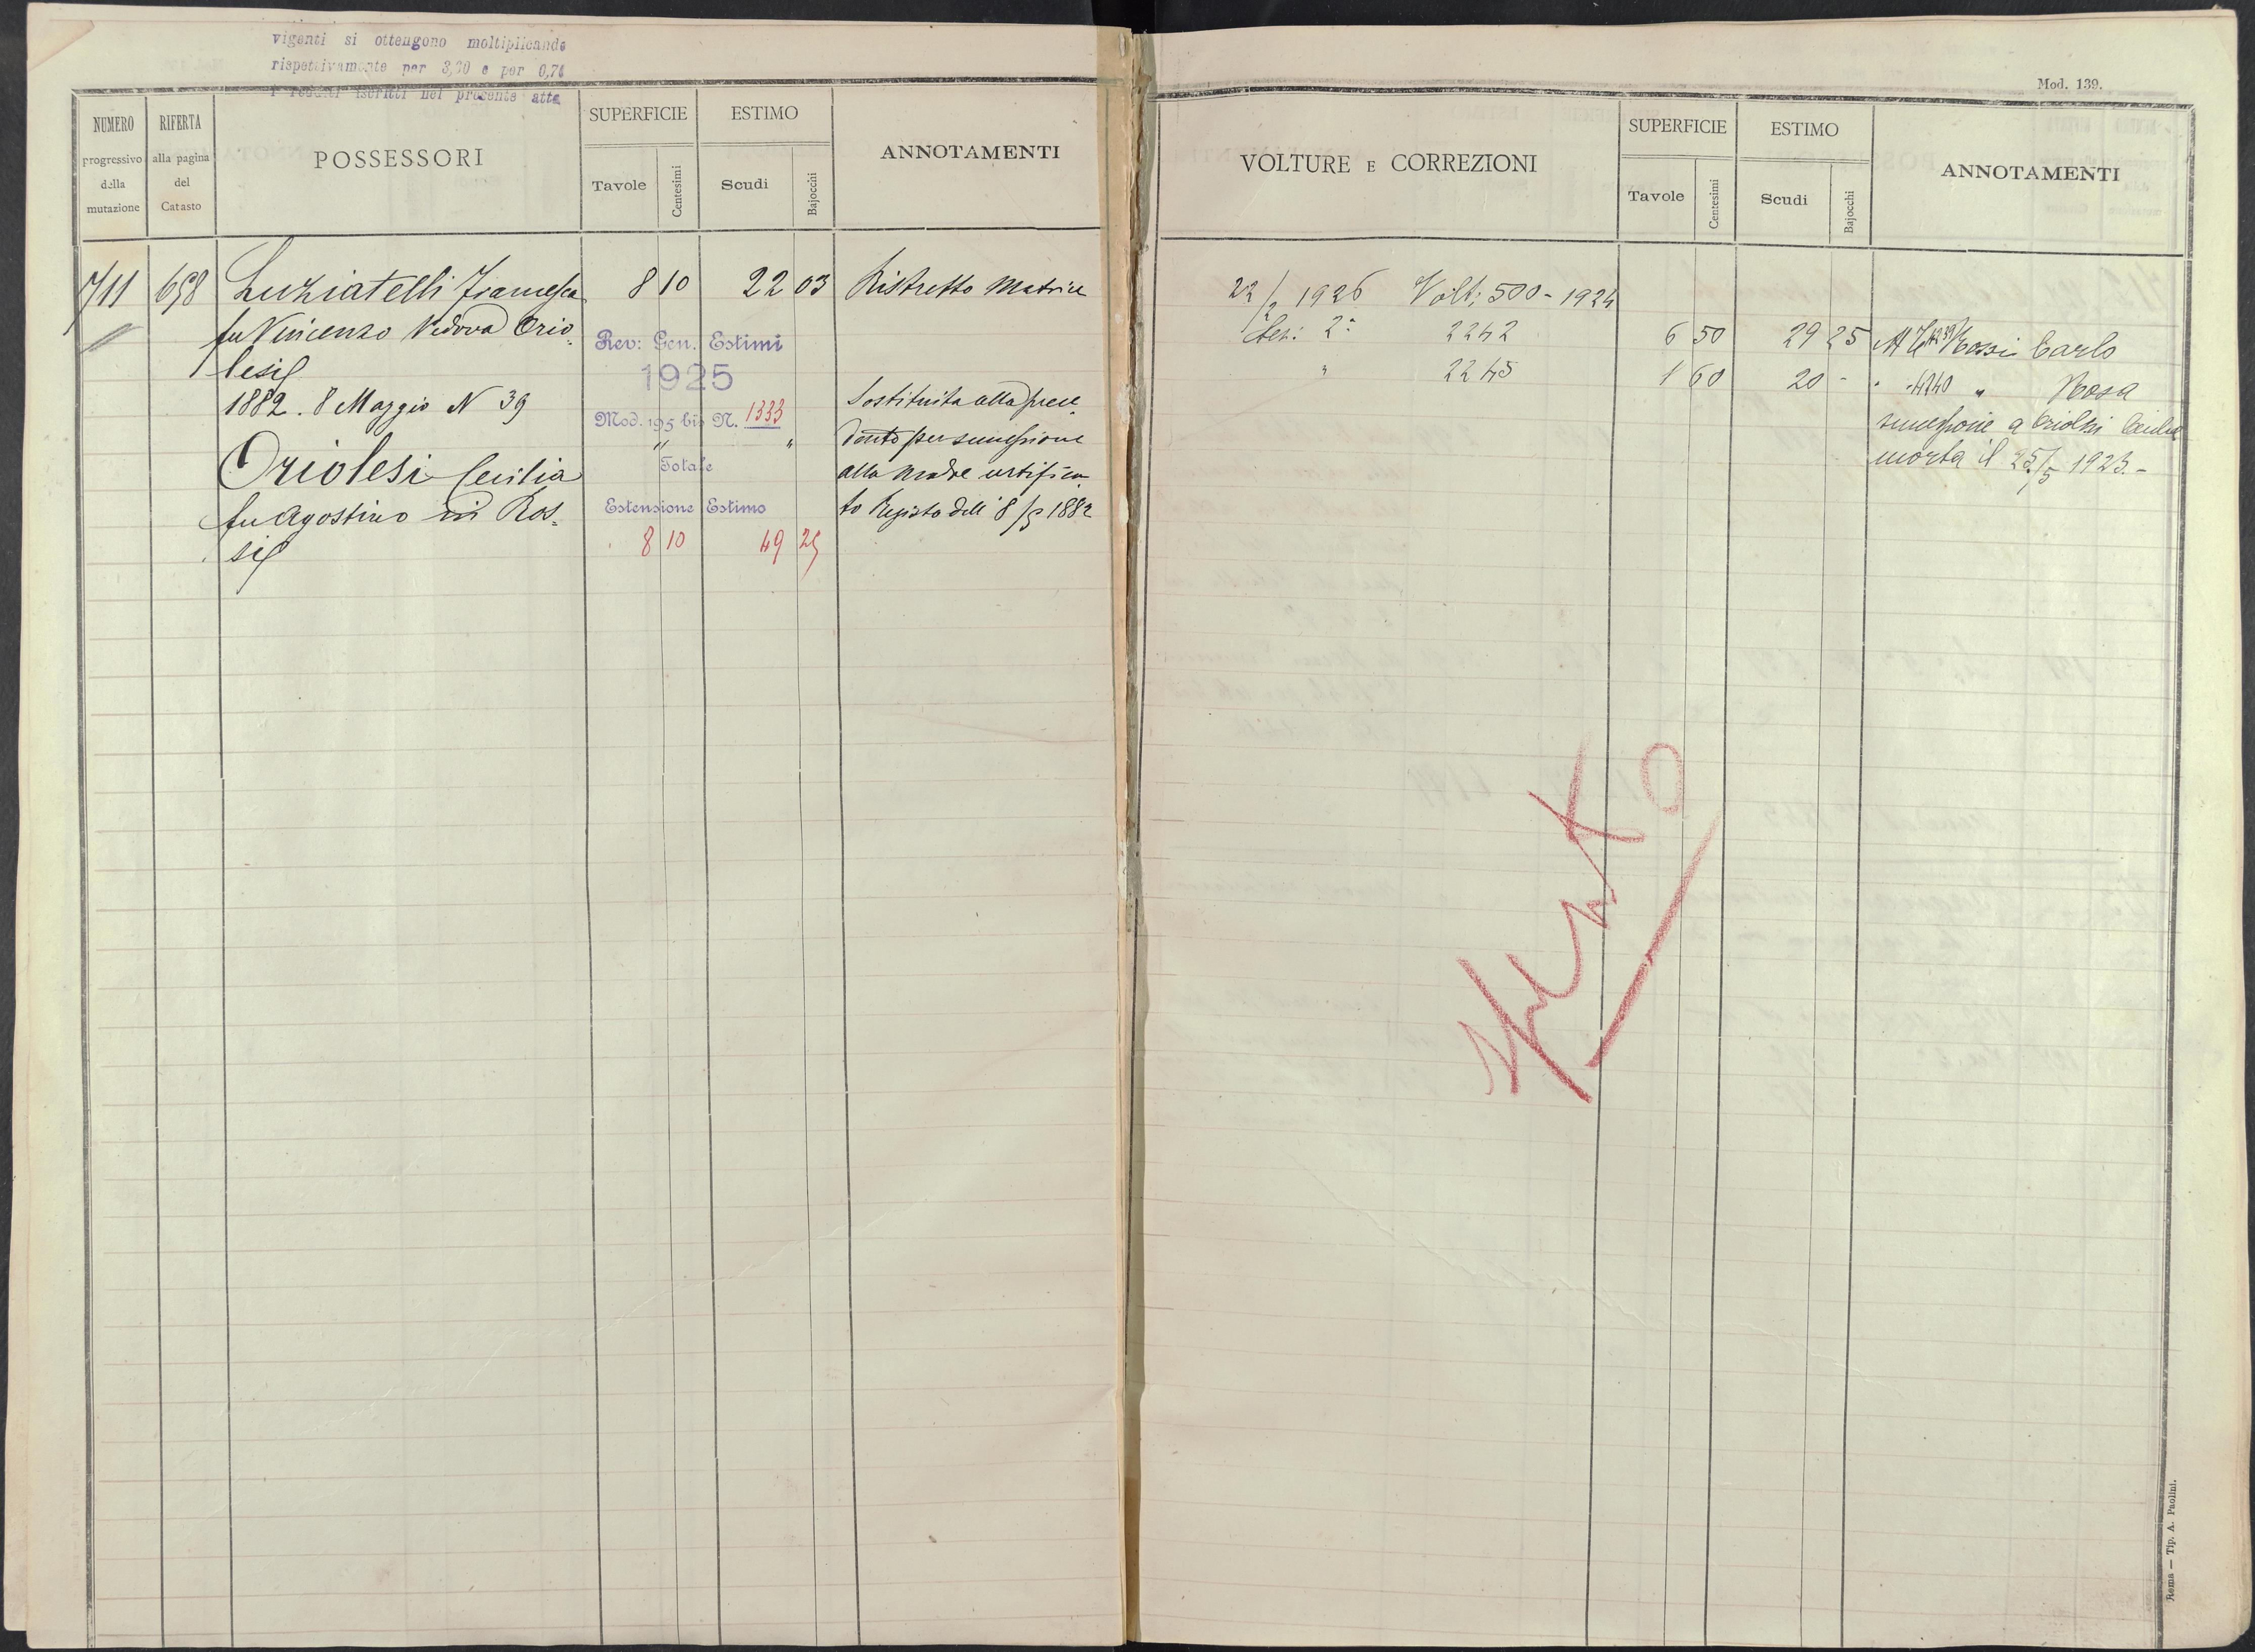 vigenti si ottengono moltiplicando
rispettivamente per 3,30 e per 0,74
i redditi iscritti nel presente atto
NUMERO
progressivo
della
mutazione
RIFERTA
alla pagina
del
Catasto
POSSESSORI
SUPERFICIE
Tavole
Centesimi
ESTIMO
Scudi
Bajocchi
ANNOTAMENTI
711 698 Luziatelli Francesca 8 10 22 03 Ristretto Matrice
fu Vincenzo Vedova Orio=
lesi
Rev: Gen. Estimi
1925
1882. 8 Maggio N 39
Mod. 195 bis N. 1333
" "
Totale
Estensione Estimo
8 10 49 25
Oriolesi Cecilia
fu Agostino in Ros=
si
Sostituita alla prece
dente per successione
alla Madre certifica
to Registo dell' 8/5 1882
Mod. 139.
VOLTURE E CORREZIONI
SUPERFICIE
Tavole
Centesimi
ESTIMO
Scudi
Bajocchi
ANNOTAMENTI
22/2 1926 Volt: 500 - 1924
Sez: 2ª 2242 6 50 29 25 4239 Rossi Carlo
" 2245 1 60 20 - " 4240 " Rosa
successione a Oriolesi Cecilia
morta il 25/5 1923.-
Spento
Roma — Tip. A. Paolini.